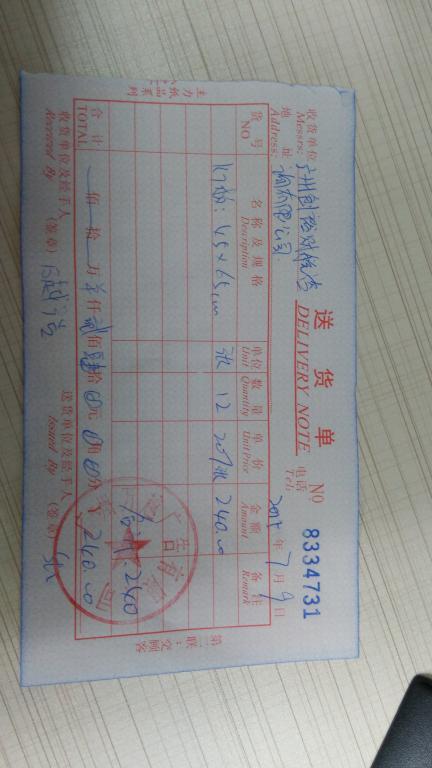 送货单
DELIVERY NOTE
No 8334731
收货单位 广州创裕财税咨
Messrs:
电话
Tel:
地址 询有限公司
Address:
2018年7月9日
货号 名称及规格 单位 数量 单价 金额 备注
NO Description Unit Quantity Unit Price Amount Remark
45×65cm 张 12 20/张 240.00
合计 240
合计 佰 拾 万 仟 贰佰肆拾0元0角0分 240.00
TOTAL
收货单位及经手人(签章) 送货单位及经手人(签章)
Received By Issued By
第二联:交顾客